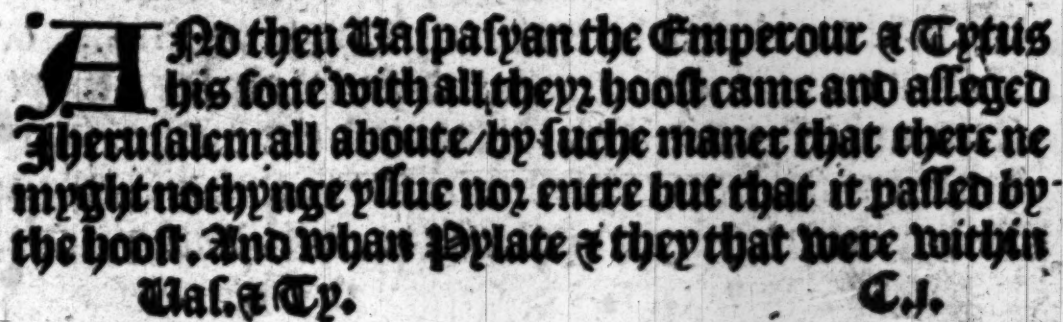 ANd then Uaſpaſyan the Emperour & Tytus
his ſone with all theyꝛ hooſt came and aſſeged
Jheruſalem all aboute/by ſuche maner that there ne
myght nothynge yſſue noꝛ entre but that it paſſed by
the hooſt. And whan Pylate & they that were within
Uaſ. & Ty. C.j.